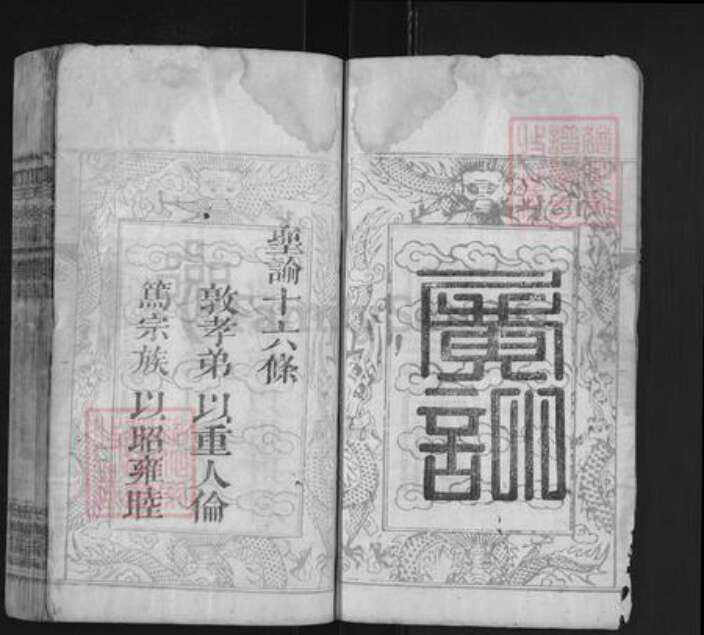 廣訓
聖諭十六條
敦孝弟以重人倫
篤宗族以昭雍睦